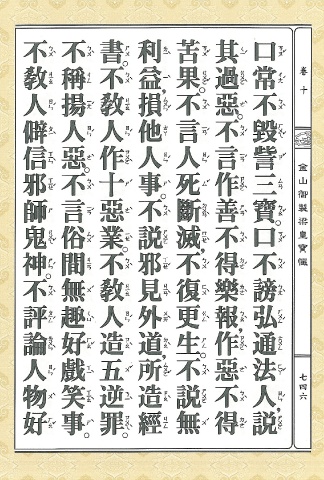 卷十
金山御製梁皇寶懺
七四六
口常不毀訾三寶。口不謗弘通法人，說
其過惡。不言作善不得樂報，作惡不得
苦果。不言人死斷滅，不復更生。不說無
利益，損他人事。不說邪見外道，所造經
書。不教人作十惡業。不教人造五逆罪。
不稱揚人惡。不言俗間無趣好戲笑事。
不教人僻信邪師鬼神。不評論人物好